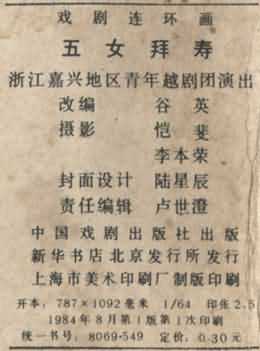 戏剧连环画
五女拜寿
浙江嘉兴地区青年越剧团演出
改编 谷英
摄影 恺斐
李本荣
封面设计 陆星辰
责任编辑 卢世澄
中国戏剧出版社出版
新华书店北京发行所发行
上海市美术印刷厂制版印刷
开本:787×1092毫米 1/64 印张2.5
1984年8月第1版第1次印刷
统一书号:8069·549 定价:0.30元